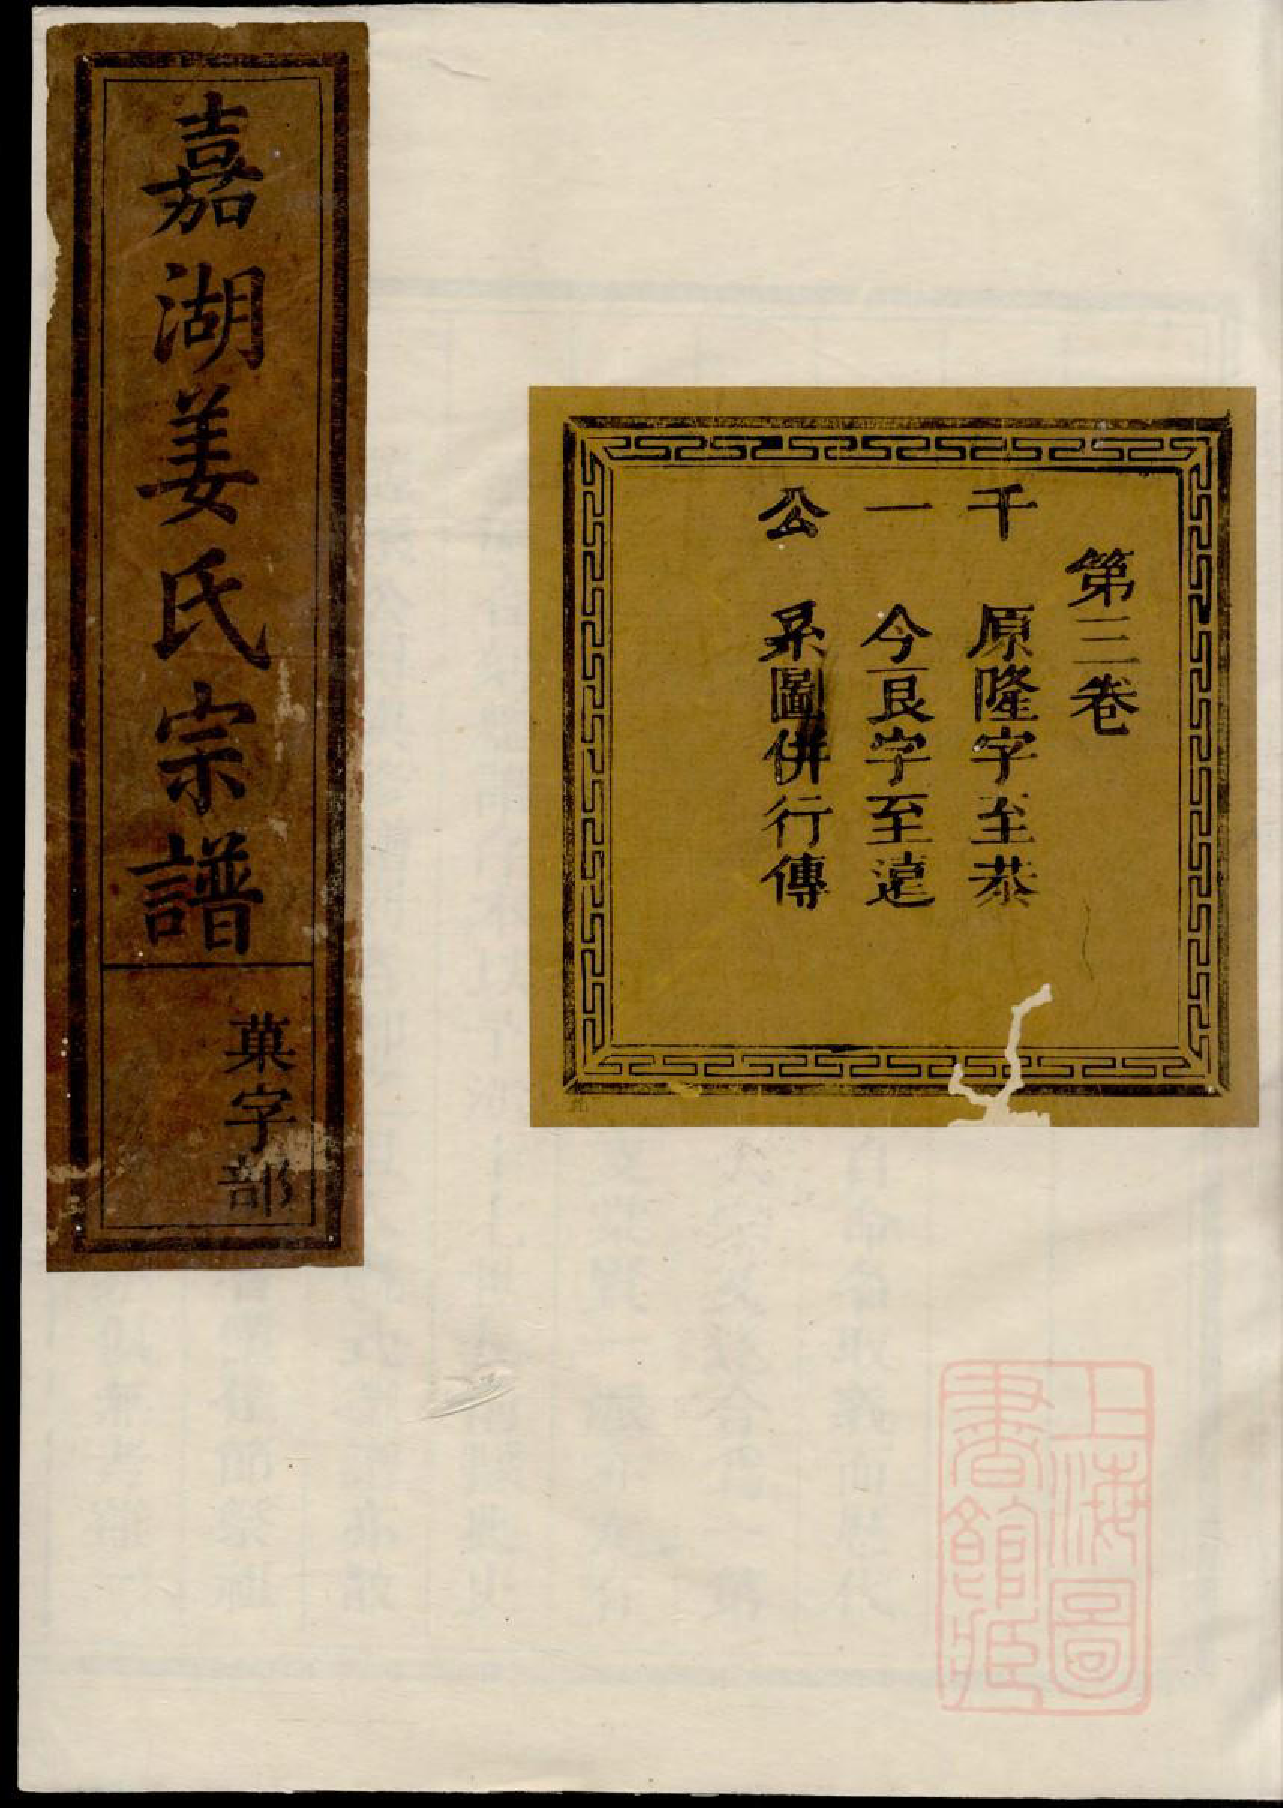 嘉湖姜氏宗譜
菓字部
第三卷
千 原隆字至恭
一 今良字至遠
公 系圖併行傳
上海圖
書館藏